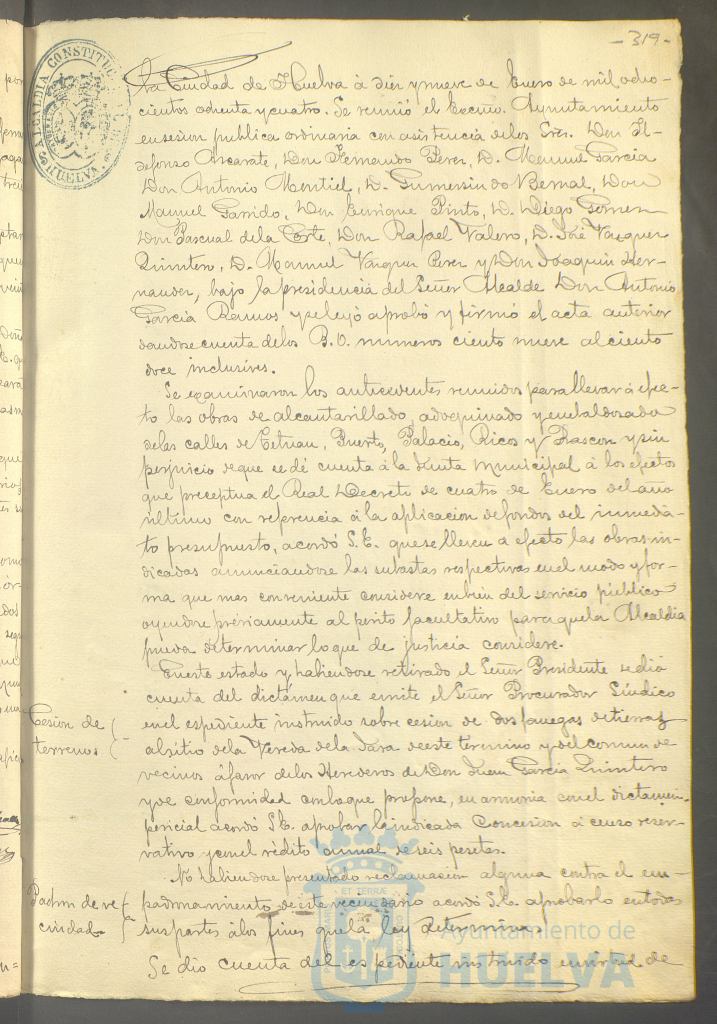 - 319 -
ALCALDIA CONSTITUC
HUELVA
la Ciudad de Huelva á diez y nueve de Enero de mil ocho-
cientos ochenta y cuatro. Se reunió el Excmo. Ayuntamiento
en sesion publica ordinaria con asistencia de los Sres. Don Il-
defonso Azcarate, Don Fernando Perez, D. Manuel Garcia
Don Antonio Montiel, D. Gumersindo Bernal, Don
Manuel Garrido, Don Enrique Pinto, D. Diego Gomez
Don Pascual de la Corte, Don Rafael Valero, D. José Vazquez
Quintero, D. Manuel Vazquez Perez y Don Joaquin Her-
nandez, bajo la presidencia del Señor Alcalde Don Antonio
García Ramos y se leyó aprobó y firmó el acta anterior
dandose cuenta de los B. O. numeros ciento nueve al ciento
doce inclusives.
Se examinaron los antecedentes reunidos para llevar á efec-
to las obras de alcantarillado, adoquinado y embaldosado
de las calles de Tetuan, Puerto, Palacio, Ricos y Rascon y sin
perjuicio de que se dé cuenta á la Junta Municipal á los efectos
que preceptua el Real Decreto de cuatro de Enero del año
último con referencia á la aplicacion de fondos del inmedia-
to presupuesto, acordó S.E. que se lleven á efecto las obras in-
dicadas anunciandose las subastas respectivas en el modo y for-
ma que mas conveniente considere en bien del servicio público
oyendose préviamente al perito facultativo para que la Alcaldia
pueda determinar lo que de justicia considere.
En este estado y habiendose retirado el Señor Presidente se dió
cuenta del dictámen que emite el Señor Procurador Síndico
en el espediente instruido sobre cesion de dos fanegas de tierras
Cesion de
terrenos
al sitio de la Vereda de la Jara de este termino y del comun de
vecinos á favor de los Herederos de Don Juan García Quintero
y de conformidad con lo que propone, en armonia con el dictamen
pericial acordó S.E. aprobar la indicada Concesion á censo reser-
vativo y con el rédito annual de seis pesetas.
No habiendose presentado reclamacion alguna contra el em-
Padron de ve
cindad
padronamiento de este vecindario acordó S.E. aprobarlo en todas
sus partes á los fines que la ley determina.
Se dio cuenta del espediente instruido en virtud de
Ayuntamiento de
HUELVA